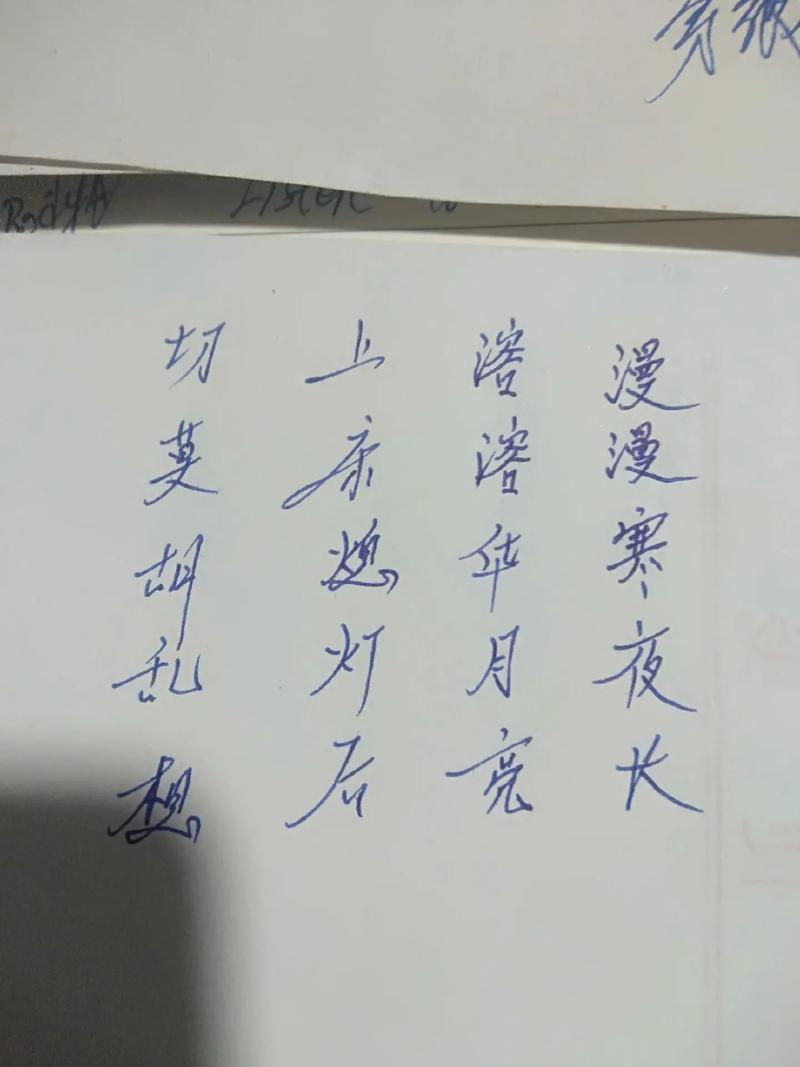 漫漫寒夜长
溶溶华月亮
上床熄灯后
切莫胡乱想